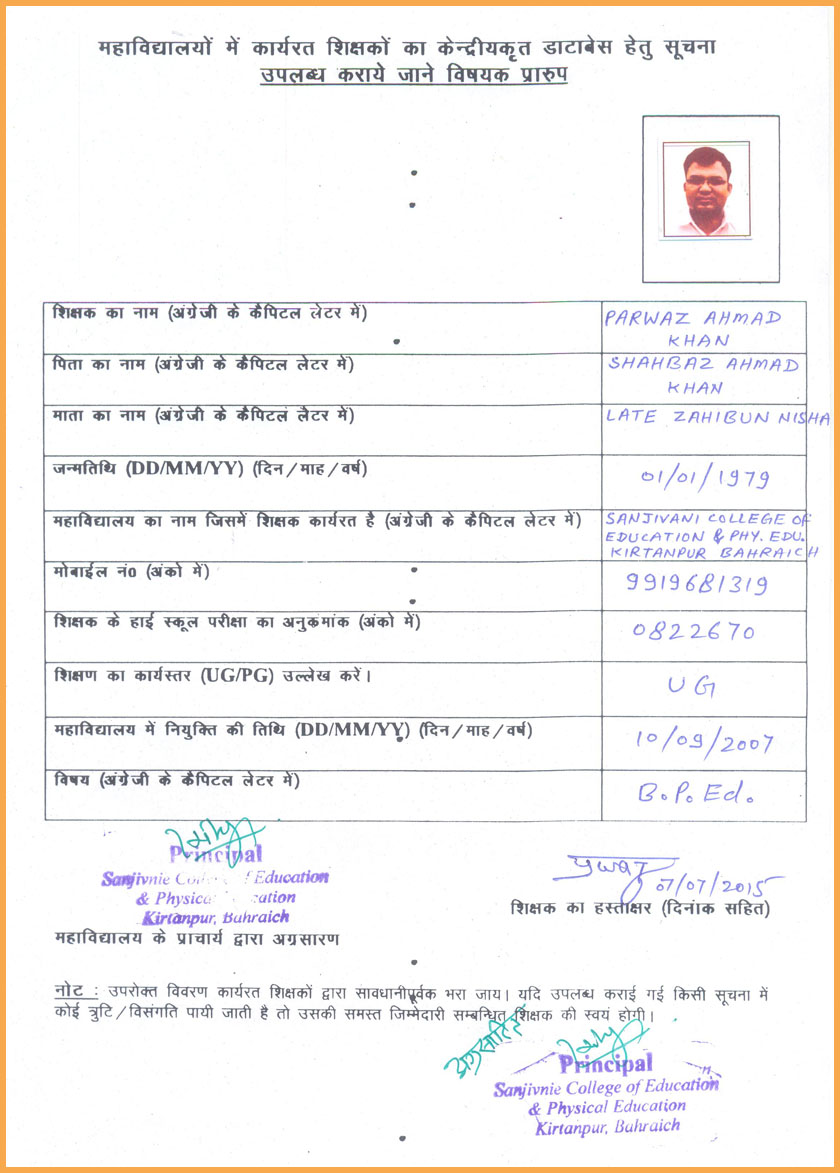 महाविद्यालयों में कार्यरत शिक्षकों का केन्द्रीयकृत डाटाबेस हेतु सूचना
उपलब्ध कराये जाने विषयक प्रारुप
शिक्षक का नाम (अंग्रेजी के कैपिटल लेटर में)
PARWAZ AHMAD
KHAN
पिता का नाम (अंग्रेजी के कैपिटल लेटर में)
SHAHBAZ AHMAD
KHAN
माता का नाम (अंग्रेजी के कैपिटल लैटर में)
LATE ZAHIBUN NISHA
जन्मतिथि (DD/MM/YY) (दिन/माह/वर्ष)
01/01/1979
महाविद्यालय का नाम जिसमें शिक्षक कार्यरत है (अंग्रेजी के कैपिटल लेटर में)
SANJIVANI COLLEGE OF
EDUCATION & PHY. EDU.
KIRTANPUR BAHRAICH
मोबाईल नं0 (अंको में)
9919681319
शिक्षक के हाई स्कूल परीक्षा का अनुकमांक (अंको में)
0822670
शिक्षण का कार्यस्तर (UG/PG) उल्लेख करें।
UG
महाविद्यालय में नियुक्ति की तिथि (DD/MM/YY) (दिन/माह/वर्ष)
10/09/2007
विषय (अंग्रेजी के कैपिटल लेटर में)
B.P.Ed.
Principal
Sanjivnie College of Education
& Physical Education
Kirtanpur, Bahraich
महाविद्यालय के प्राचार्य द्वारा अग्रसारण
07/07/2015
शिक्षक का हस्ताक्षर (दिनांक सहित)
नोट : उपरोक्त विवरण कार्यरत शिक्षकों द्वारा सावधानीपूर्वक भरा जाय। यदि उपलब्ध कराई गई किसी सूचना में
कोई त्रुटि/विसंगति पायी जाती है तो उसकी समस्त जिम्मेदारी सम्बन्धित शिक्षक की स्वयं होगी।
अग्रसारित
Principal
Sanjivnie College of Education
& Physical Education
Kirtanpur, Bahraich